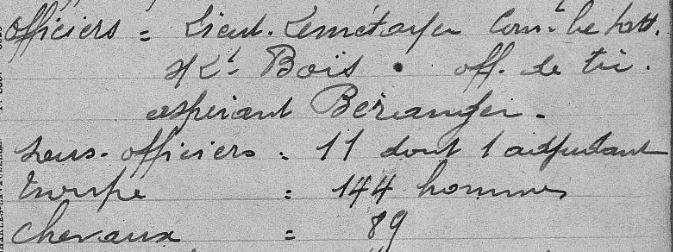 officiers = Lieut. Lemétayer Com.t la batt.
Lt Bois . off. de tir.
aspirant Béranger.
sous-officiers = 11 dont 1 adjudant
Troupe = 144 hommes
Chevaux = 89